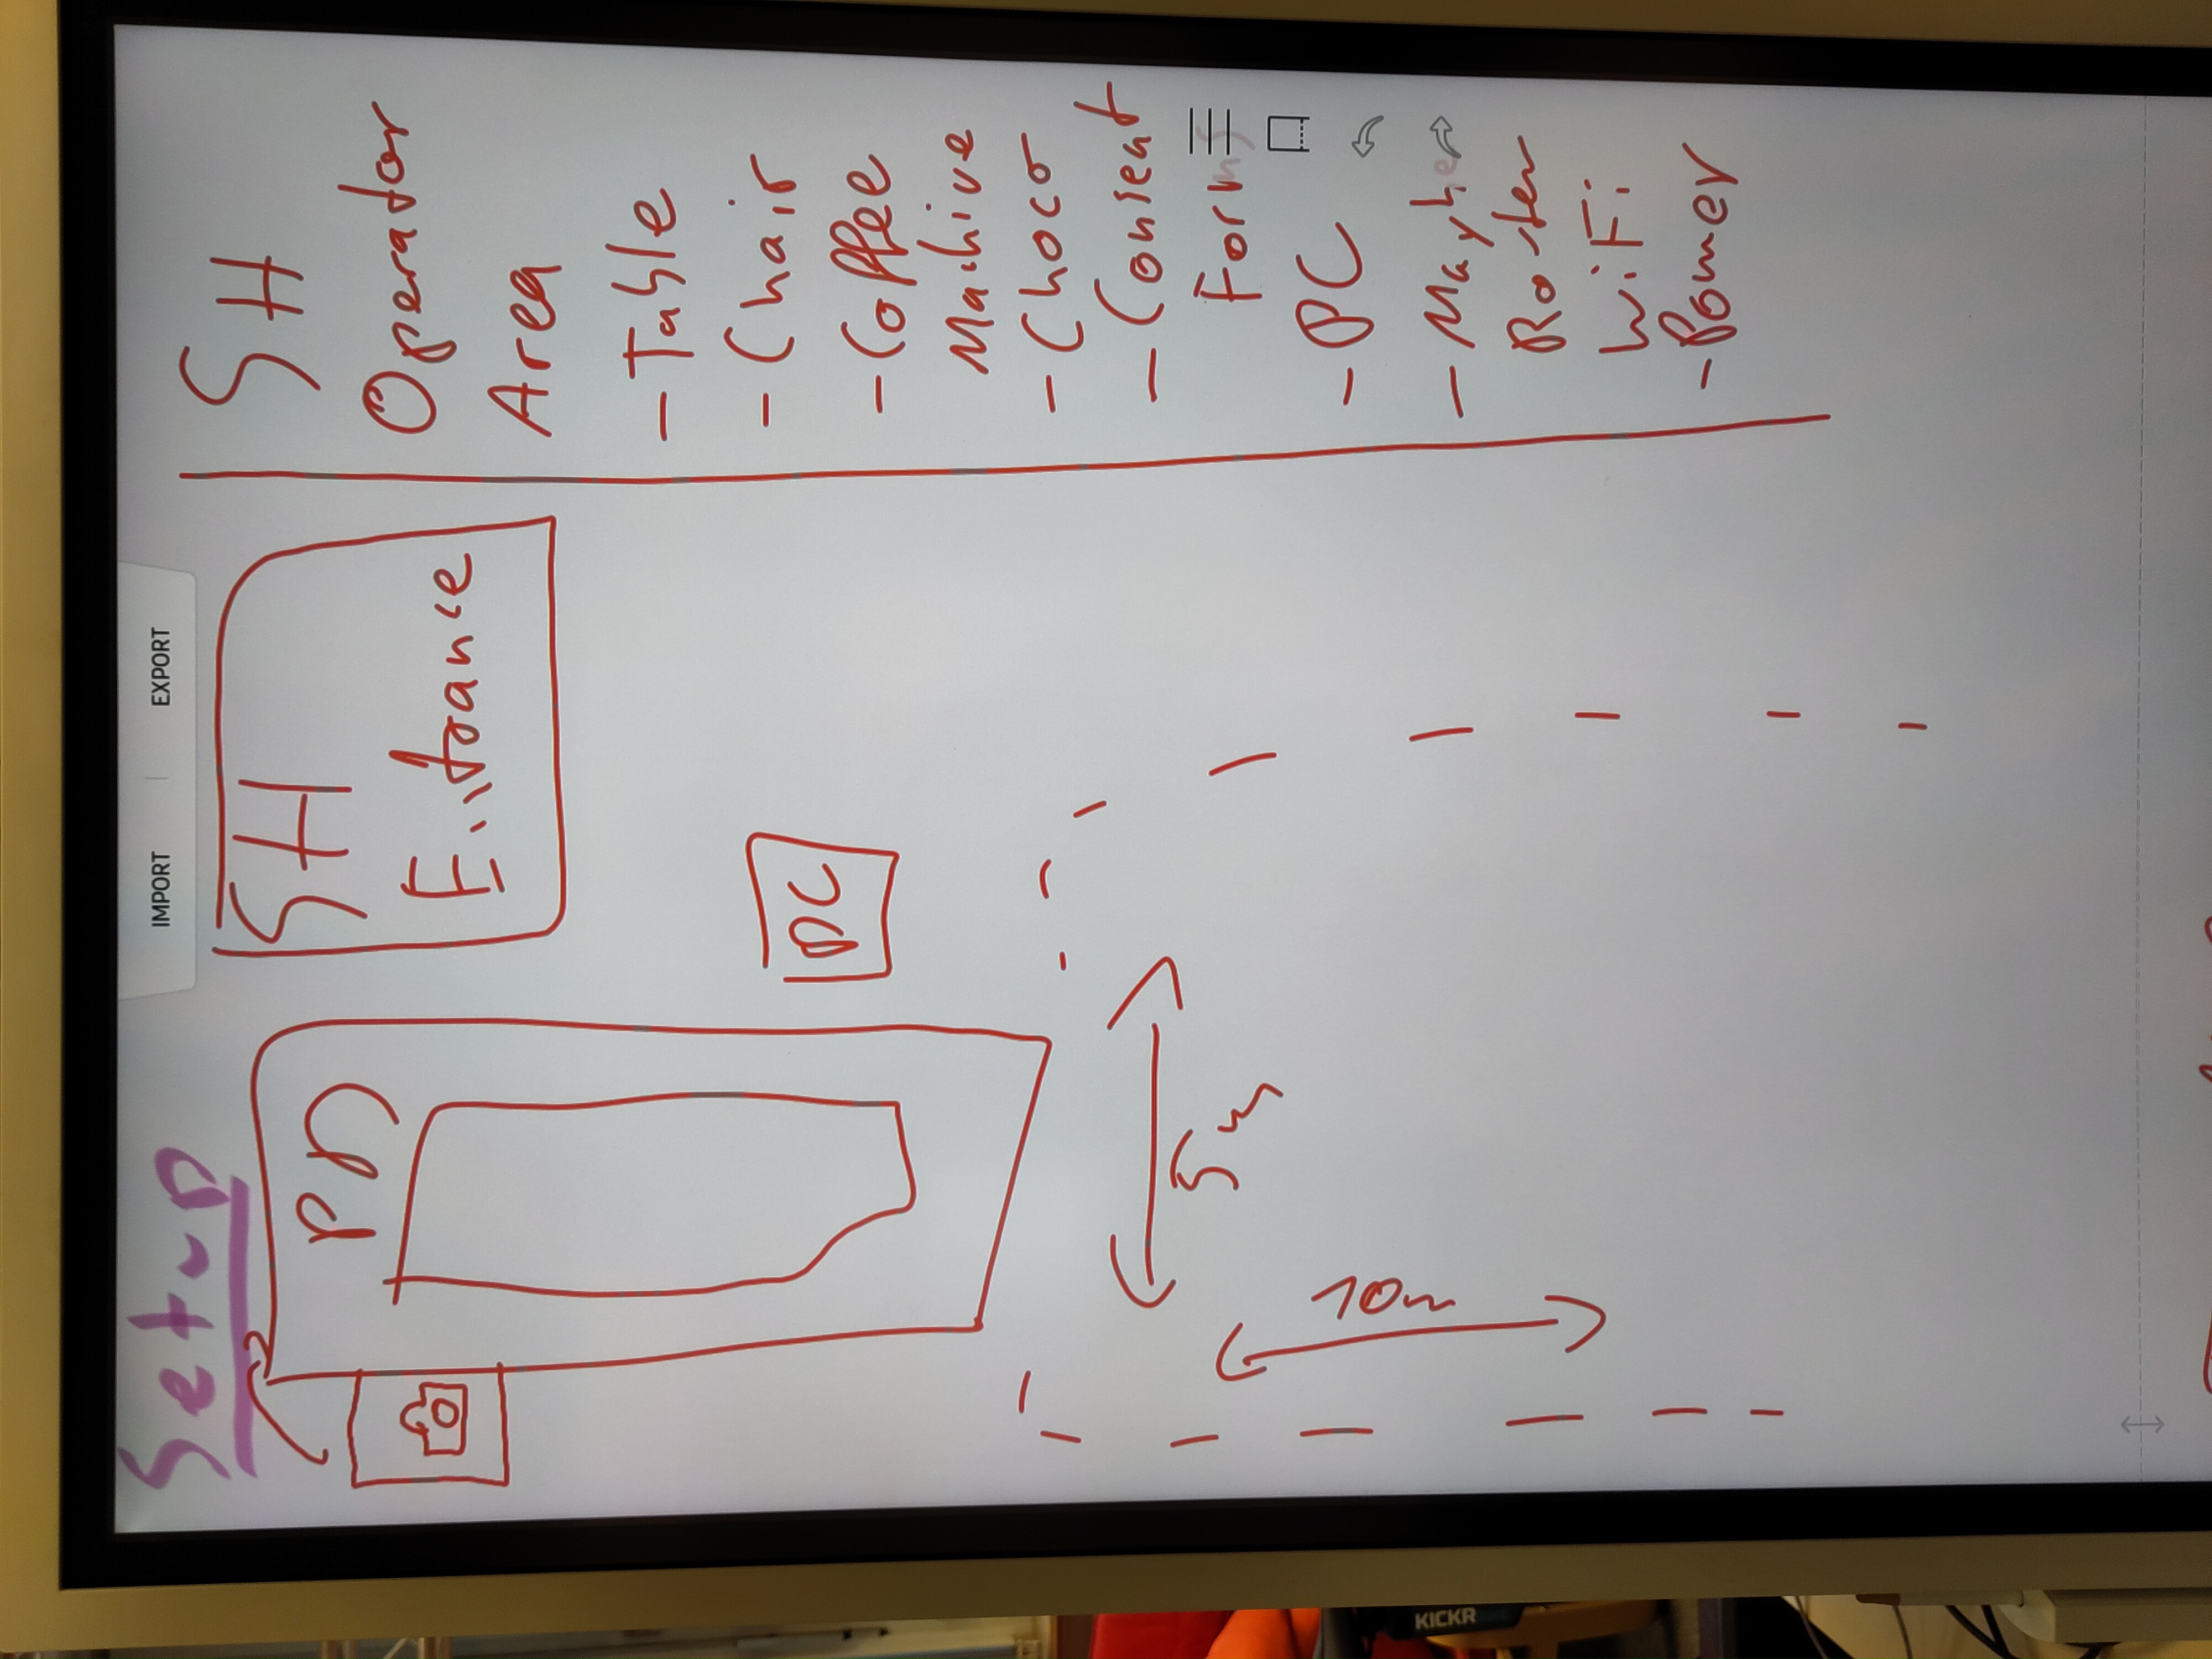 Setup
IMPORT
EXPORT
PD
SH
Entrance
PC
5m
10m
SH
Operator
Area
- Table
- Chair
- Coffee
Machine
- Choco
- Consent
Forms
- PC
- Maybe
Router
WiFi
- Power
KICKR